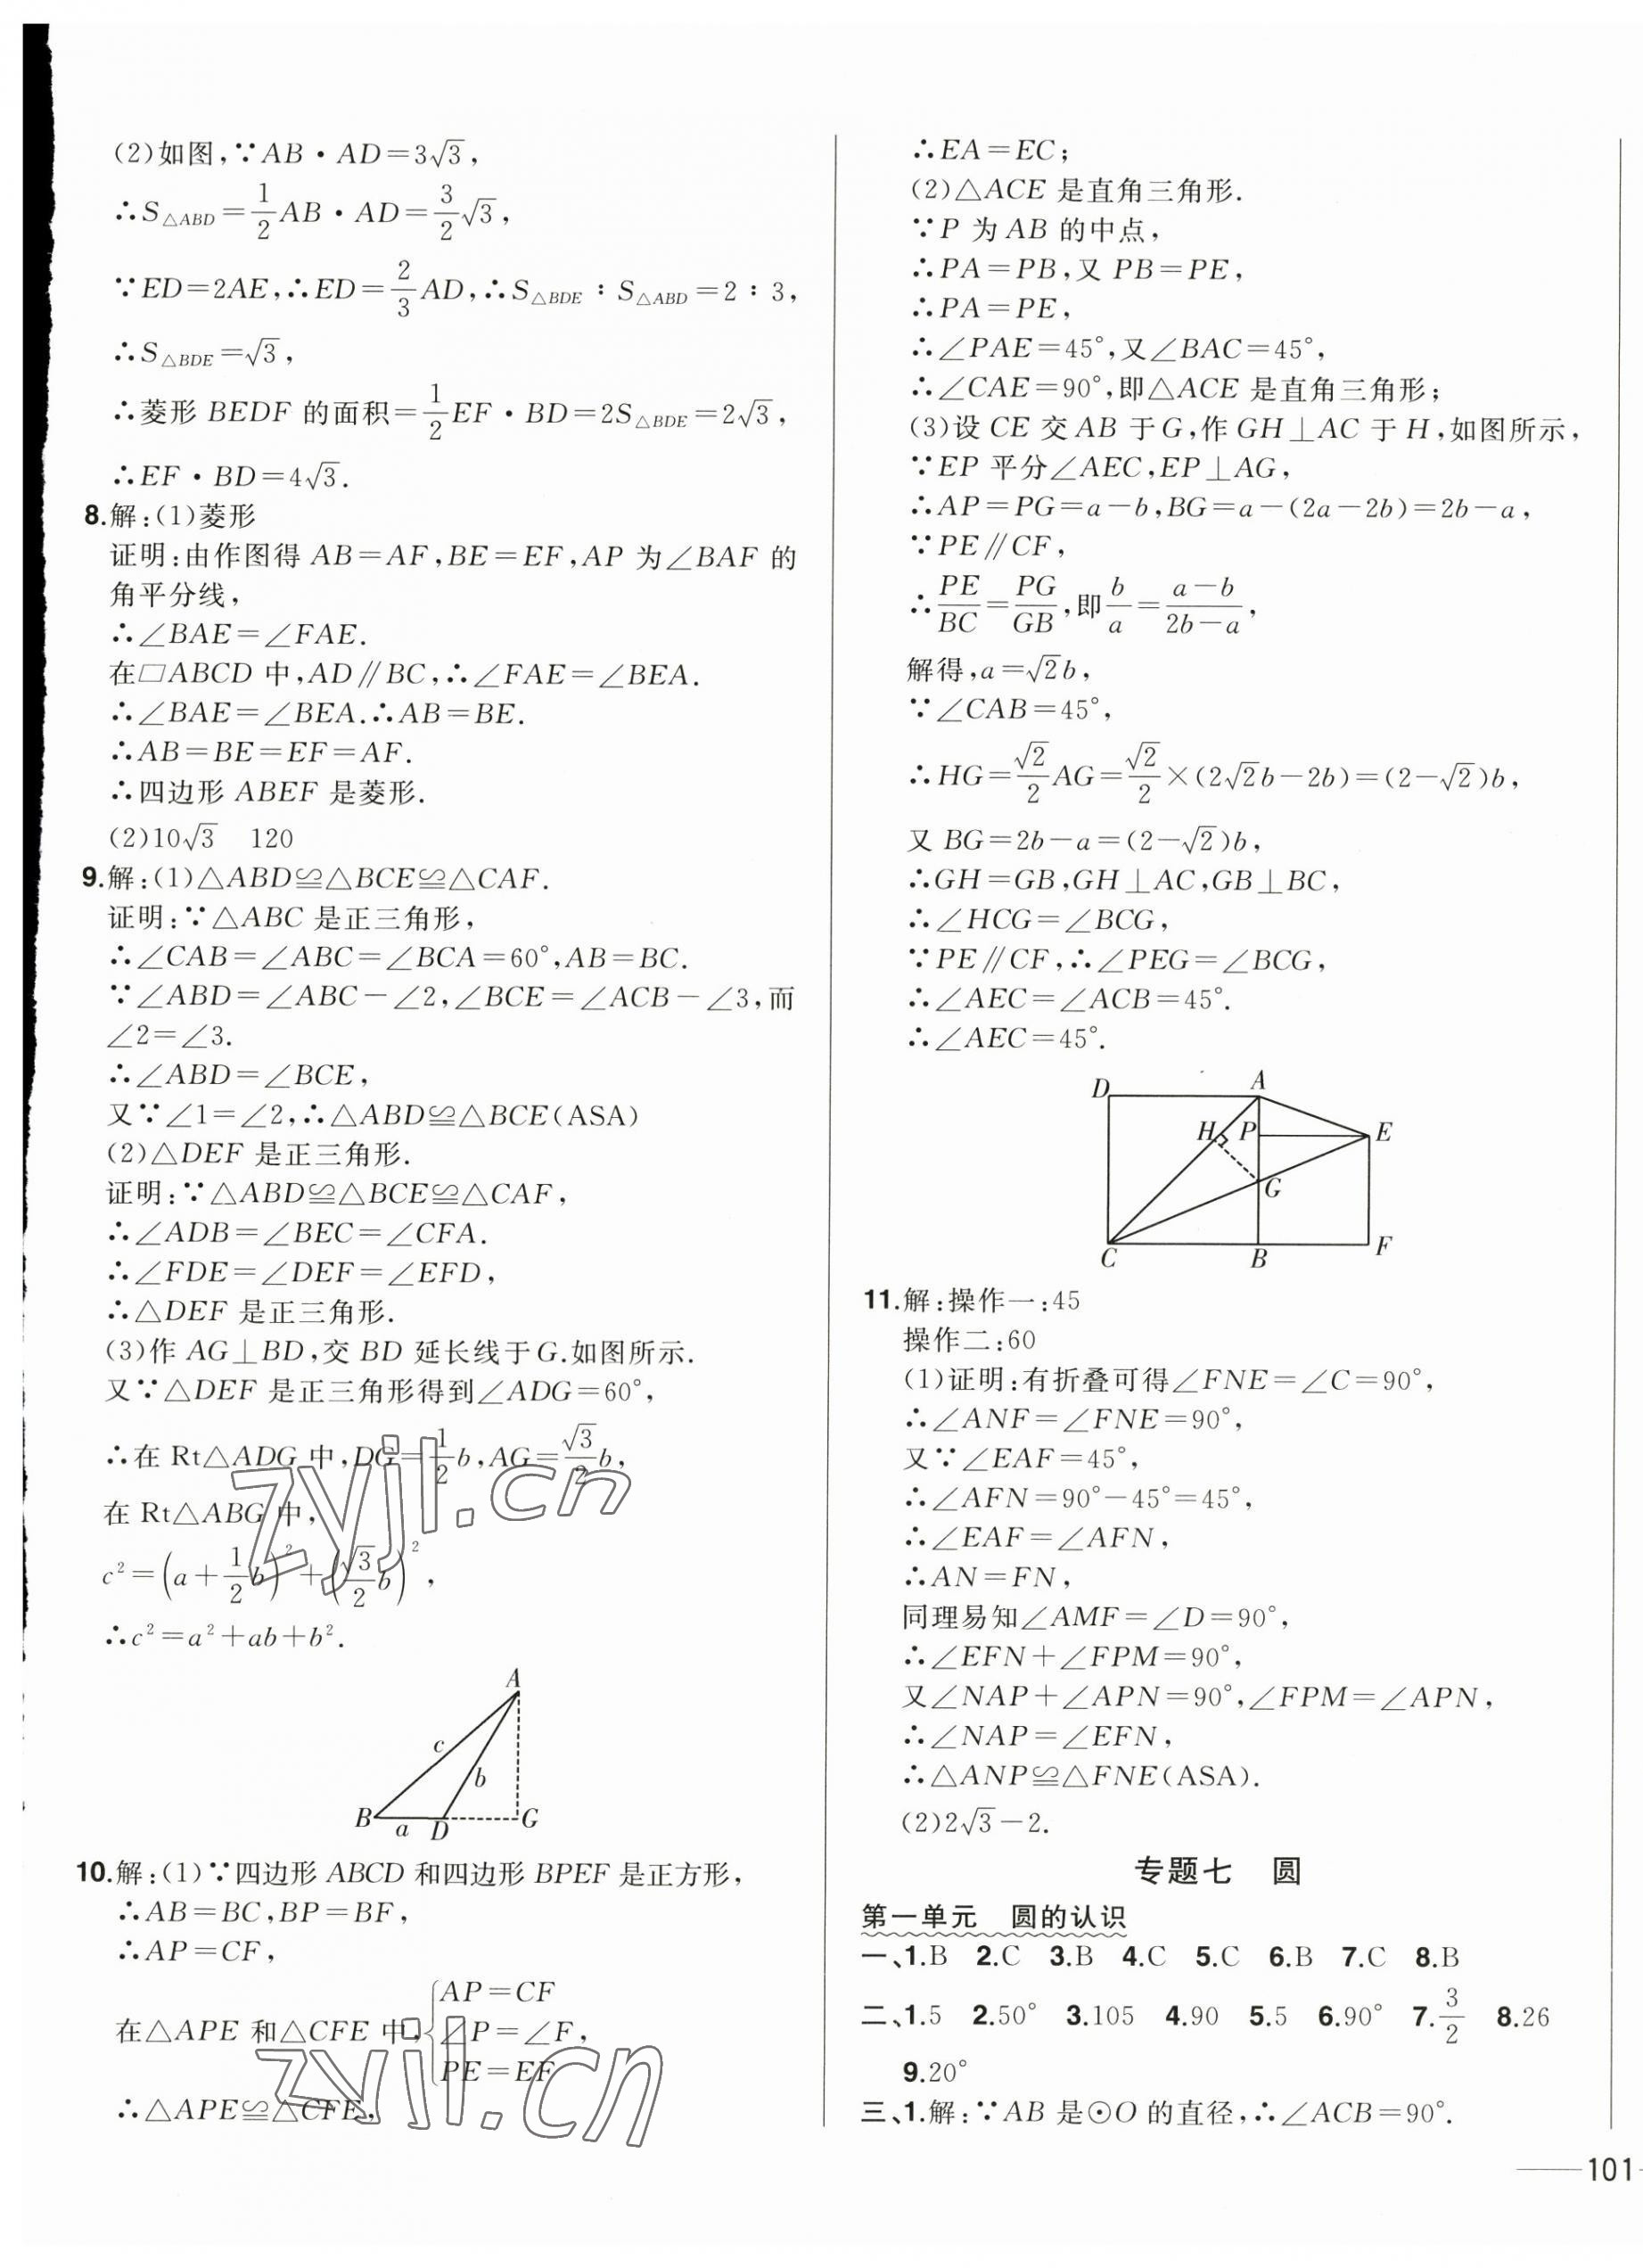 (2)如图,∵AB·AD=3√3,
∴S△ABD=1/2AB·AD=3/2√3,
∵ED=2AE,∴ED=2/3AD,∴S△BDE:S△ABD=2:3,
∴S△BDE=√3,
∴菱形BEDF的面积=1/2EF·BD=2S△BDE=2√3,
∴EF·BD=4√3.
8.解:(1)菱形
证明:由作图得AB=AF,BE=EF,AP为∠BAF的
角平分线,
∴∠BAE=∠FAE.
在□ABCD中,AD∥BC,∴∠FAE=∠BEA.
∴∠BAE=∠BEA.∴AB=BE.
∴AB=BE=EF=AF.
∴四边形ABEF是菱形.
(2)10√3 120
9.解:(1)△ABD≌△BCE≌△CAF.
证明:∵△ABC是正三角形,
∴∠CAB=∠ABC=∠BCA=60°,AB=BC.
∵∠ABD=∠ABC-∠2,∠BCE=∠ACB-∠3,而
∠2=∠3.
∴∠ABD=∠BCE,
又∵∠1=∠2,∴△ABD≌△BCE(ASA)
(2)△DEF是正三角形.
证明:∵△ABD≌△BCE≌△CAF,
∴∠ADB=∠BEC=∠CFA.
∴∠FDE=∠DEF=∠EFD,
∴△DEF是正三角形.
(3)作AG⊥BD,交BD延长线于G.如图所示.
又∵△DEF是正三角形得到∠ADG=60°,
∴在Rt△ADG中,DG=1/2b,AG=√3/2b,
在Rt△ABG中,
c²=(a+1/2b)²+(√3/2b)²,
∴c²=a²+ab+b².
A
c
b
B
a
D
G
10.解:(1)∵四边形ABCD和四边形BPEF是正方形,
∴AB=BC,BP=BF,
∴AP=CF,
在△APE和△CFE中,{AP=CF
∠P=∠F,
PE=EF
∴△APE≌△CFE,
zyjl.cn
zyjl.cn
∴EA=EC;
(2)△ACE是直角三角形.
∵P为AB的中点,
∴PA=PB,又PB=PE,
∴PA=PE,
∴∠PAE=45°,又∠BAC=45°,
∴∠CAE=90°,即△ACE是直角三角形;
(3)设CE交AB于G,作GH⊥AC于H,如图所示,
∵EP平分∠AEC,EP⊥AG,
∴AP=PG=a-b,BG=a-(2a-2b)=2b-a,
∵PE∥CF,
∴PE/BC=PG/GB,即b/a=(a-b)/(2b-a),
解得,a=√2b,
∵∠CAB=45°,
∴HG=√2/2AG=√2/2×(2√2b-2b)=(2-√2)b,
又BG=2b-a=(2-√2)b,
∴GH=GB,GH⊥AC,GB⊥BC,
∴∠HCG=∠BCG,
∵PE∥CF,∴∠PEG=∠BCG,
∴∠AEC=∠ACB=45°.
∴∠AEC=45°.
D
A
H
P
E
G
C
B
F
11.解:操作一:45
操作二:60
(1)证明:有折叠可得∠FNE=∠C=90°,
∴∠ANF=∠FNE=90°,
又∵∠EAF=45°,
∴∠AFN=90°-45°=45°,
∴∠EAF=∠AFN,
∴AN=FN,
同理易知∠AMF=∠D=90°,
∴∠EFN+∠FPM=90°,
又∠NAP+∠APN=90°,∠FPM=∠APN,
∴∠NAP=∠EFN,
∴△ANP≌△FNE(ASA).
(2)2√3-2.
专题七 圆
第一单元 圆的认识
一、1.B 2.C 3.B 4.C 5.C 6.B 7.C 8.B
二、1.5 2.50° 3.105 4.90 5.5 6.90° 7.3/2 8.26
9.20°
三、1.解:∵AB是⊙O的直径,∴∠ACB=90°.
101